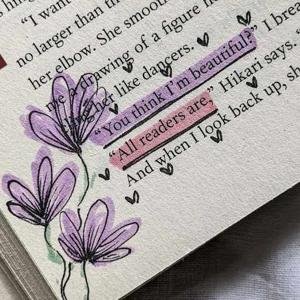 "I want
no larger than th
her elbow. She smooth
me a drawing of a figure h
her like dancers.
"You think I'm beautiful?" I brea
"All readers are," Hikari says. "
And when I look back up, sh